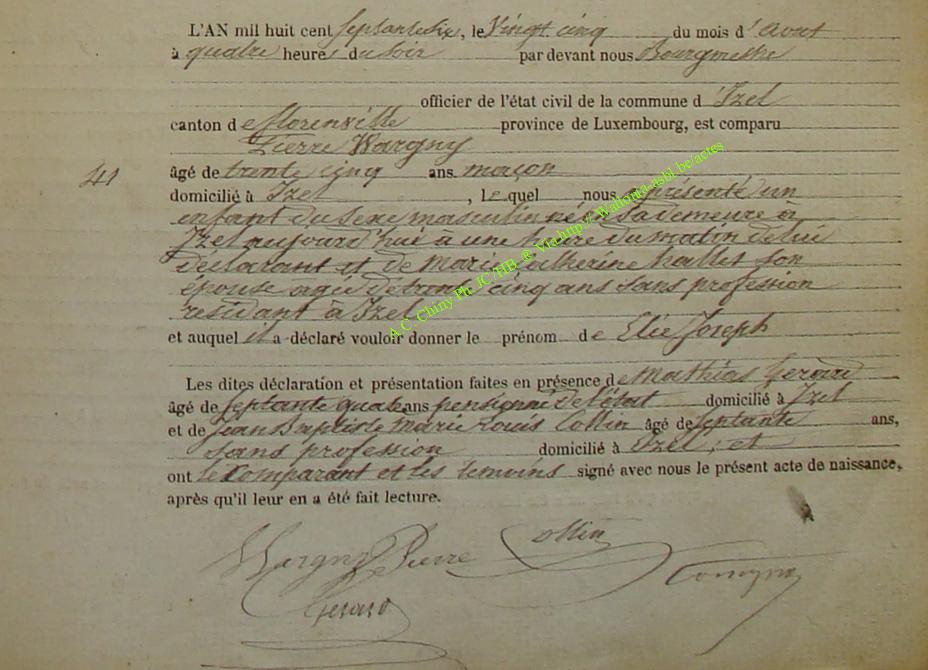 L'AN mil huit cent septante six, le Vingt cinq du mois d'Avril
à quatre heure du soir par devant nous Bourgmestre
officier de l'état civil de la commune d'Izel
canton de florenville province de Luxembourg, est comparu
Pierre Wargny
41 âgé de trente cinq ans. maçon
domicilié à Izel, Lequel nous a présenté un
enfant du sexe masculin né en sa demeure à
Izel aujourd'hui à une heure du matin de lui
déclarant et de Marie Catherine Halles son
épouse agée de trente cinq ans sans profession
résidant à Izel
et auquel il a déclaré vouloir donner le prénom de Elie Joseph
Les dites déclaration et présentation faites en présence de Mathias Gerard
âgé de septante quatre ans pensionné de l'état domicilié à Izel
et de Jean Baptiste Marie Louis Collin âgé de septante ans,
sans profession domicilié à Izel; et
ont le Comparant et les témoins signé avec nous le présent acte de naissance,
après qu'il leur en a été fait lecture.
Wargny Pierre Collin
Gerard
A.C. Chiny Ph. JC/HB @ Via http://Wallonia-asbl.be/actes